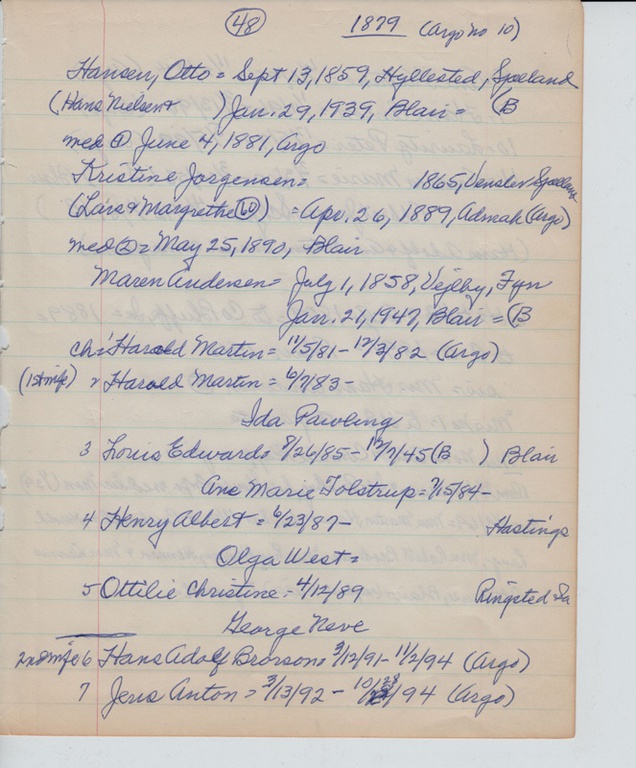 (48) 1879 (Argo no 10)
Hansen, Otto = Sept 13, 1859, Hyllested, Sjaeland
(Hans Nielsen + ) Jan. 29, 1939, Blair = (B
med ① June 4, 1881, Argo
Kristine Jorgensen = 1865, Venslev Sjaelland
(Lars + Margrethe (W)) = Apr. 26, 1889, Admah (Argo)
med ② = May 25, 1890, Blair
Maren Andersen = July 1, 1858, Vejlby, Fyn
Jan. 21, 1947, Blair = (B
ch: Harold Martin = 11/5/81 - 12/3/82 (Argo)
(1st wife) 2 Harold Martin = 6/7/83 -
Ida Pawling
3 Louis Edward = 8/26/85 - 12/7/45 (B ) Blair
Ane Marie Tolstrup = 7/15/84 -
4 Henry Albert = 6/23/87 - Hastings
Olga West =
5 Ottilie Christine - 4/12/89 Ringsted Ia
George Neve
2nd wife 6 Hans Adolf Brorson = 3/12/91 - 11/2/94 (Argo)
7 Jens Anton = 3/13/92 - 10/28/94 (Argo)